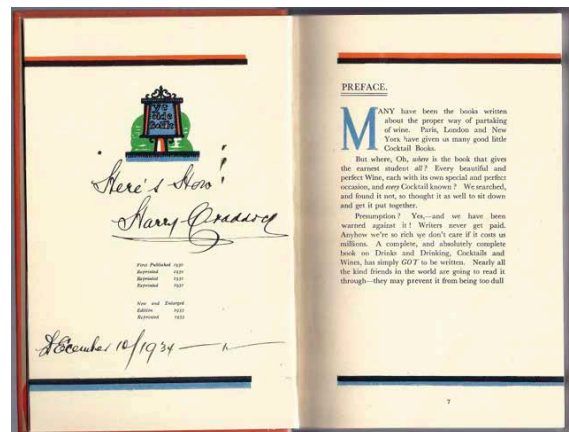 ye
olde
Here's How!
Harry Craddock
First Published 1930
Reprinted
Reprinted
Reprinted
New and Enlarged
Edition
Reprinted
December 10/1934
PREFACE.
MANY have been the books written
about the proper way of partaking
of wine. Paris, London and New
York have given us many good little
Cocktail Books.
But where, Oh, where is the book that gives
the earnest student all? Every beautiful and
perfect Wine, each with its own special and perfect
occasion, and every Cocktail known? We searched,
and found it not, so thought it as well to sit down
and get it put together.
Presumption? Yes,—and we have been
warned against it! Writers never get paid.
Anyhow we're so rich ye don't care if it costs us
millions. A complete, and absolutely complete
book on Drinks and Drinking, Cocktails and
Wines, has simply GOT to be written. Nearly all
the kind friends in the world are going to read it
through—they may prevent it from being too dull
7